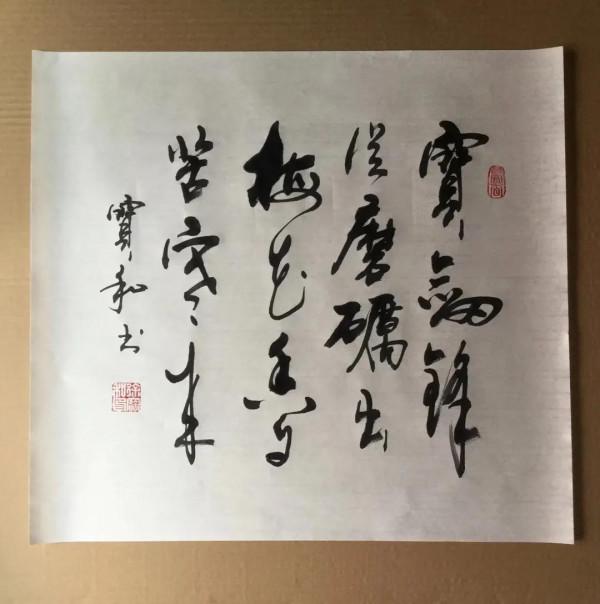 寶劍鋒
從磨礪出
梅花香自
苦寒來
寶和书